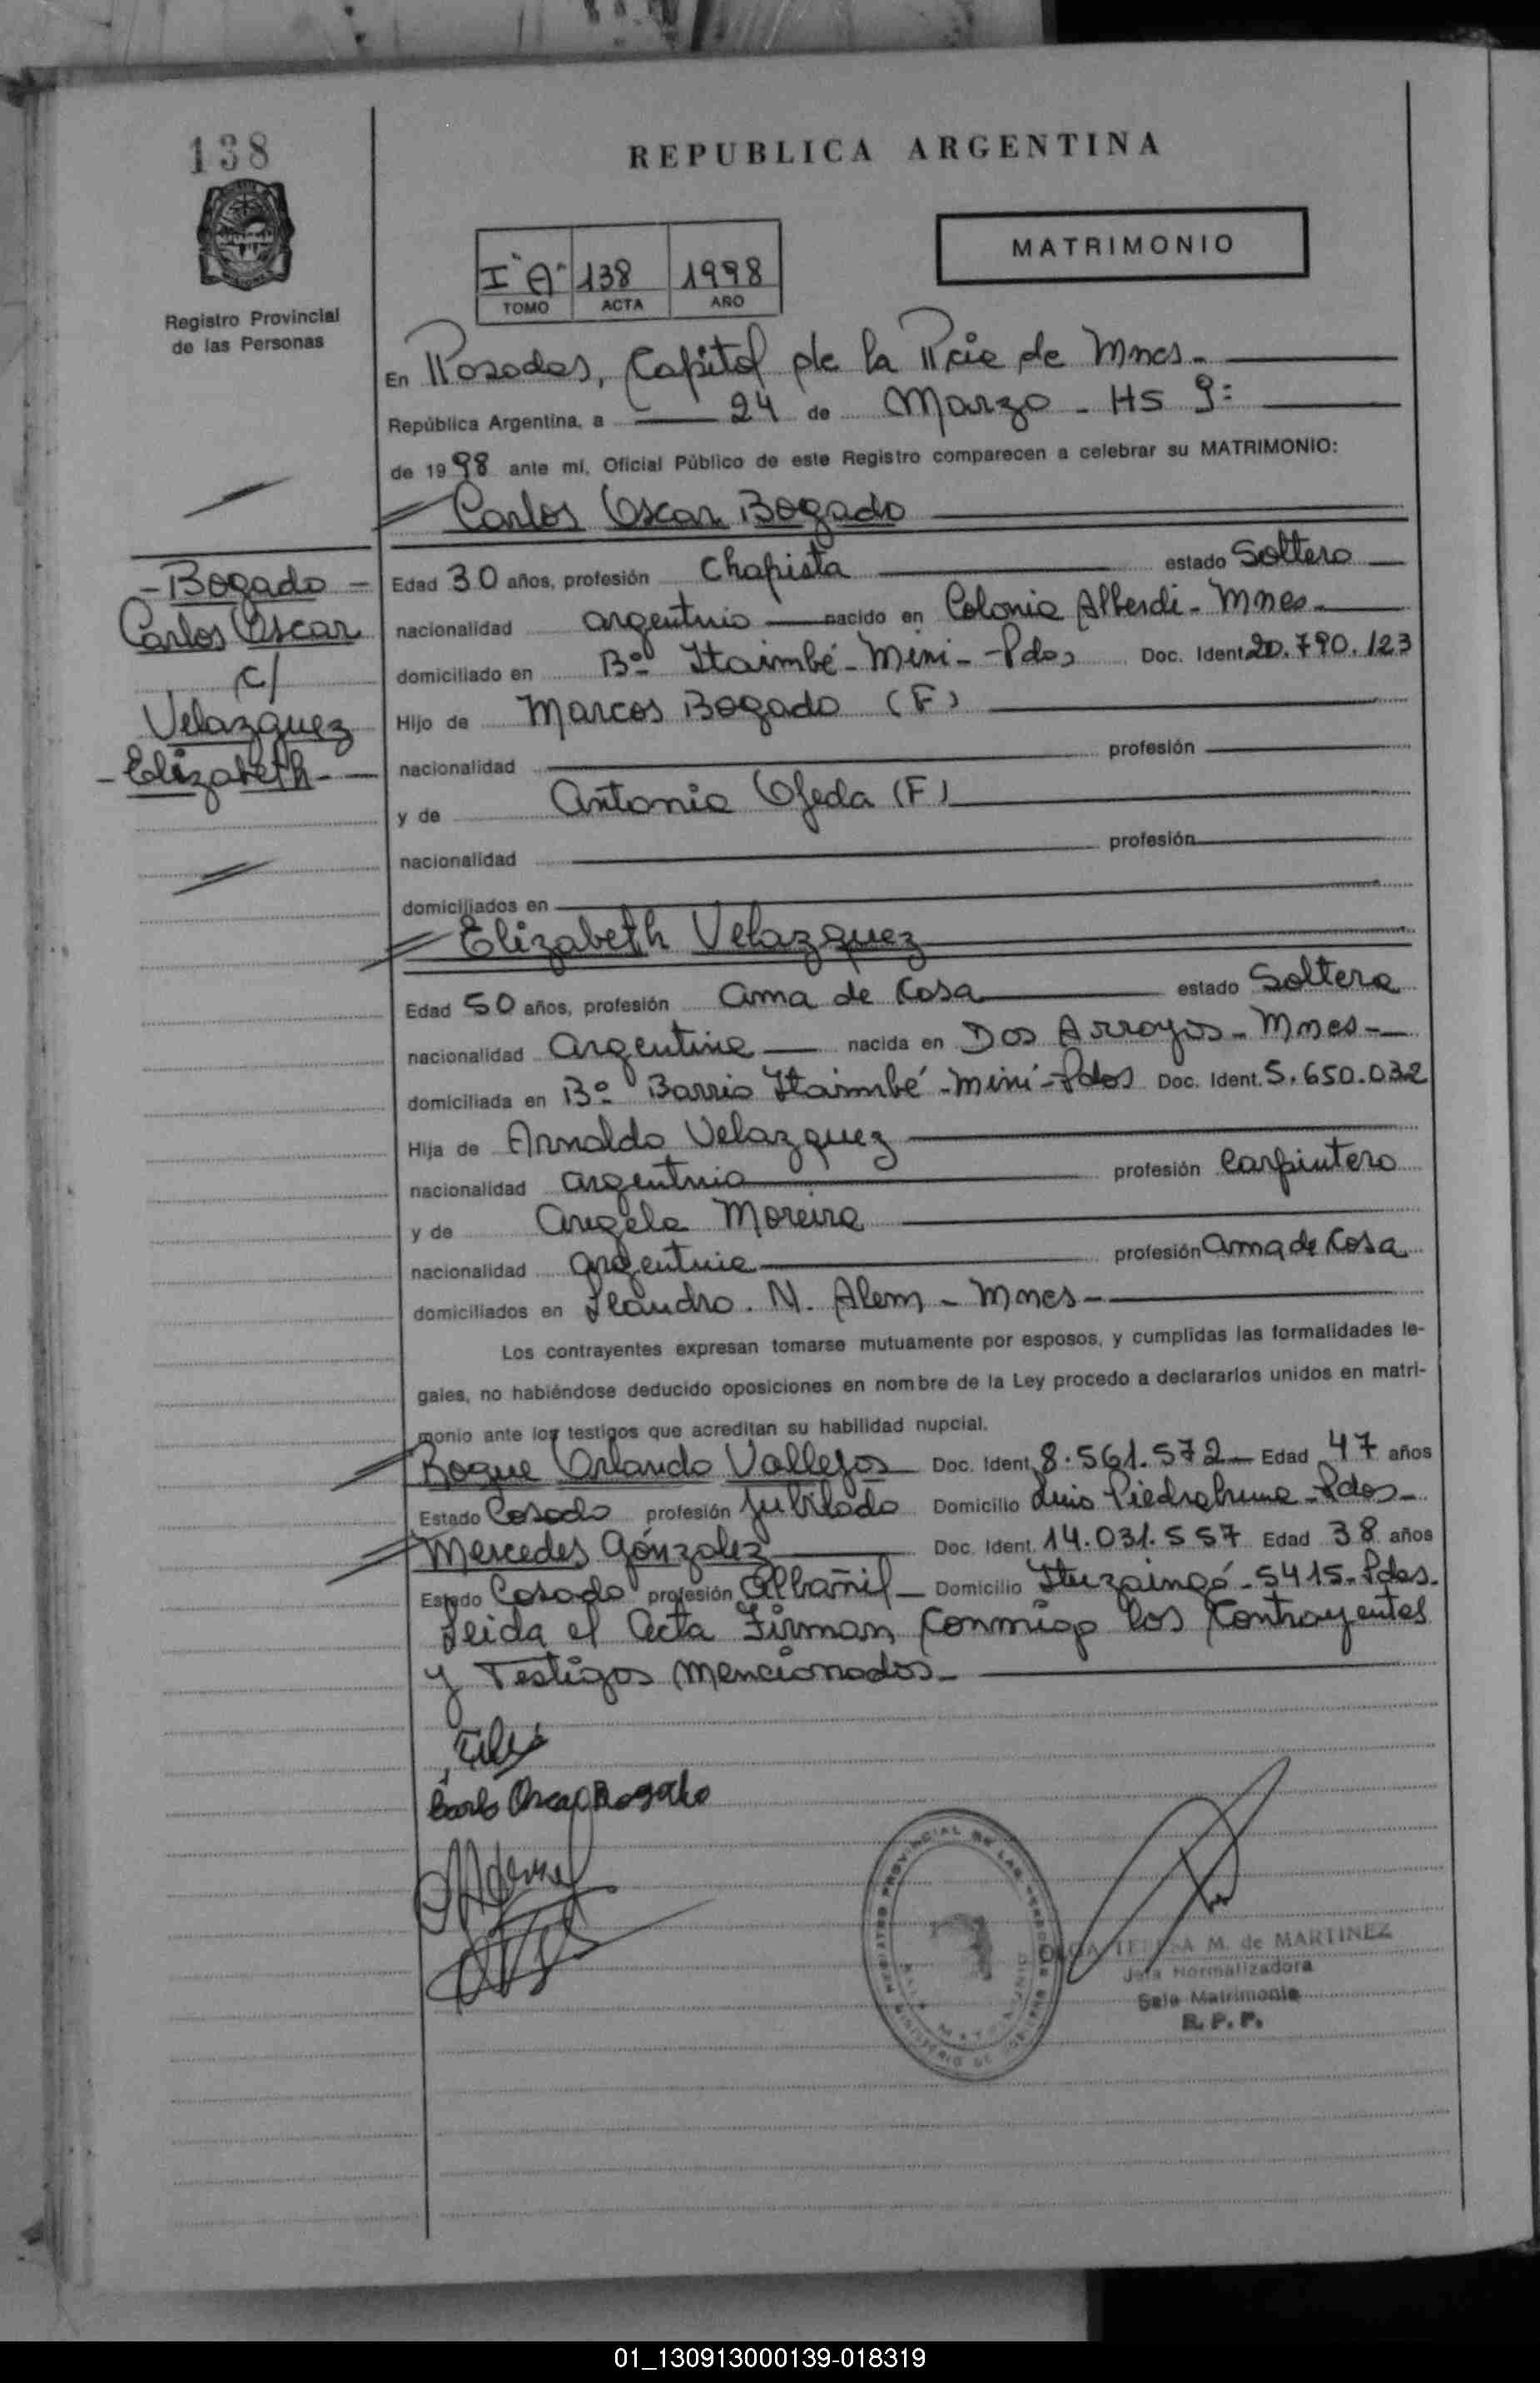 138
REPUBLICA ARGENTINA
MATRIMONIO
I "A" 138 1998
TOMO ACTA AÑO
Registro Provincial
de las Personas
En Posadas, Capital de la Pcia de Mnes.
República Argentina, a 24 de Marzo - Hs 9:
de 1998 ante mí, Oficial Público de este Registro comparecen a celebrar su MATRIMONIO:
Carlos Oscar Bogado
- Bogado -
Carlos Oscar
c/
Velazquez
- Elizabeth -
Edad 30 años, profesión Chapista estado Soltero
nacionalidad argentino nacido en Colonia Alberdi - Mnes -
domiciliado en B:º Itaimbé - Mini - Pdas Doc. Ident. 20.790.123
Hijo de Marcos Bogado (F)
nacionalidad profesión
y de Antonia Ojeda (F)
nacionalidad profesión
domiciliados en
Elizabeth Velazquez
Edad 50 años, profesión Ama de Casa estado Soltera
nacionalidad Argentina nacida en Dos Arroyos - Mnes -
domiciliada en B:º Barrio Itaimbé - Mini - Pdas Doc. Ident. 5.650.032
Hija de Arnaldo Velazquez
nacionalidad argentino profesión Carpintero
y de Angela Moreira
nacionalidad argentina profesión Ama de Casa
domiciliados en Leandro. N. Alem - Mnes -
Los contrayentes expresan tomarse mutuamente por esposos, y cumplidas las formalidades le-
gales, no habiéndose deducido oposiciones en nombre de la Ley procedo a declararlos unidos en matri-
monio ante los testigos que acreditan su habilidad nupcial.
Roque Orlando Vallejos Doc. Ident. 8.561.572 - Edad 47 años
Estado Casado profesión Jubilado Domicilio Luis Piedrabuena - Pdas -
Mercedes González Doc. Ident. 14.031.557 Edad 38 años
Estado Casado profesión Albañil - Domicilio Ituzaingó - 5415 - Pdas.
Leida el Acta Firman conmigo los Contrayentes
y Testigos mencionados -
Carlos Oscar Bogado
TERESA M. de MARTINEZ
Jefa Normalizadora
Sala Matrimonio
R. P. P.
01_130913000139-018319